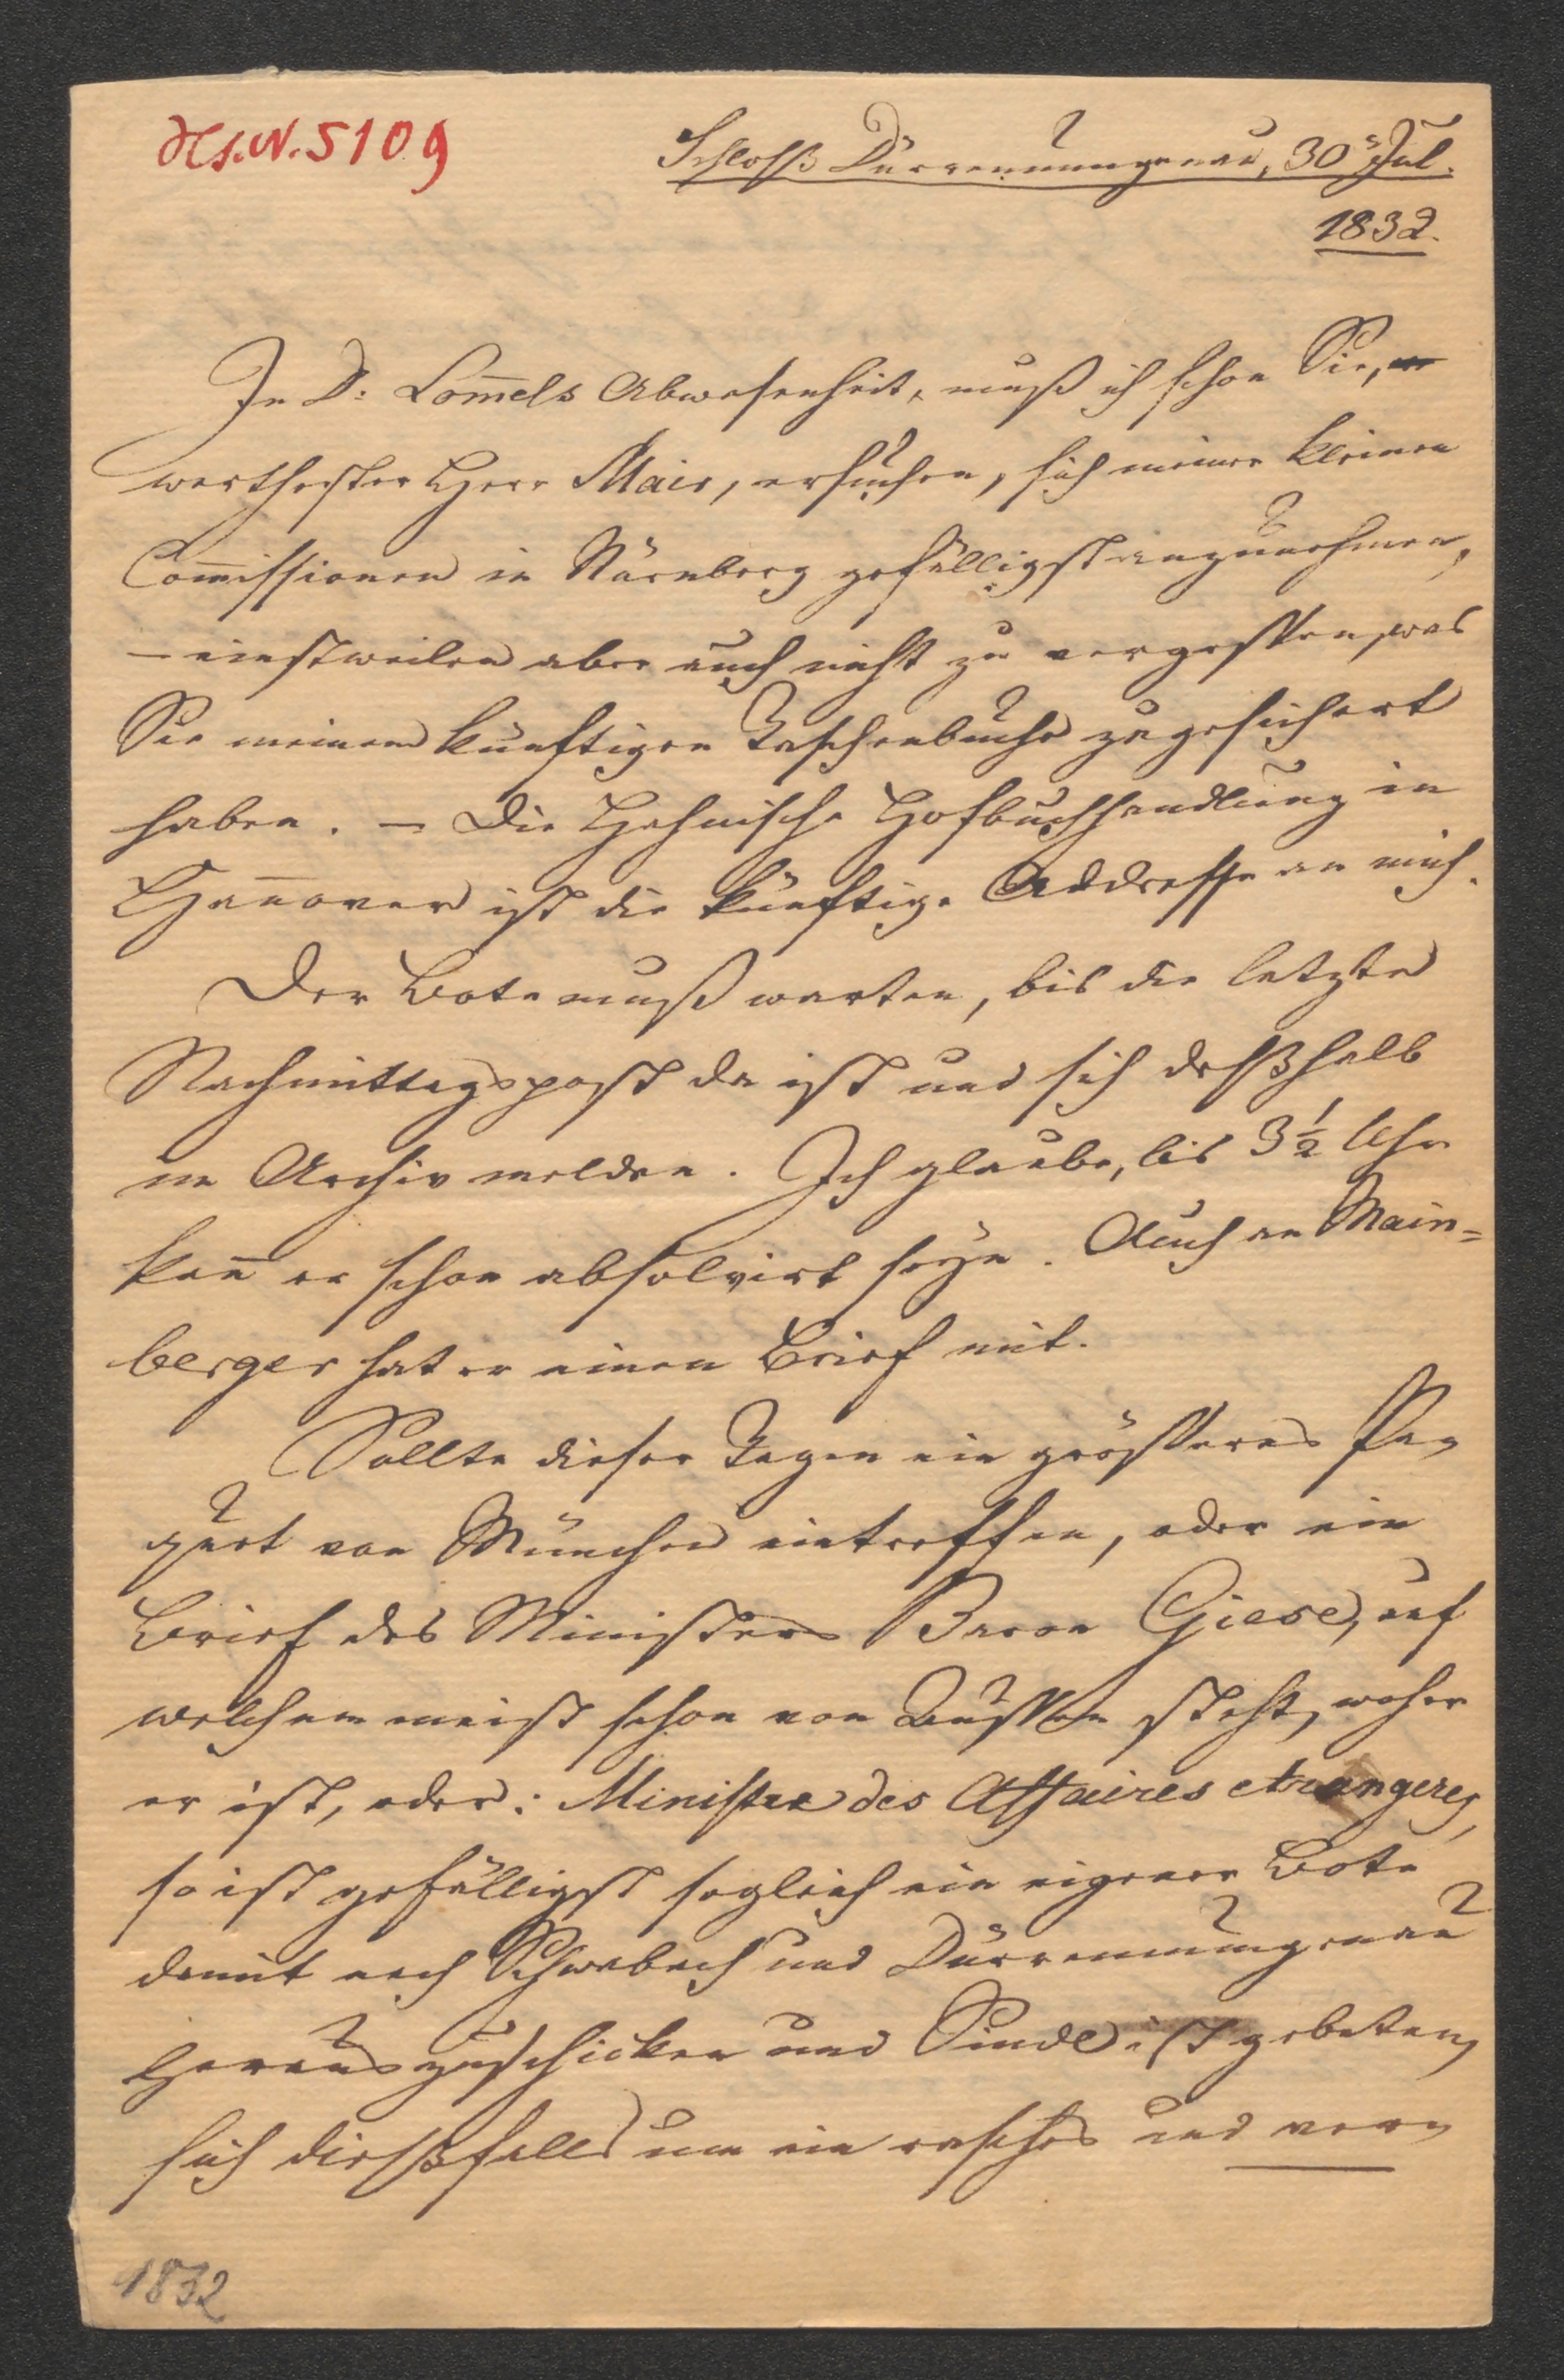 Hs.N. 5109
Schloß Dürrenmungenau, 30 Jul.
1832.
In D: Lom̄els Abwesenheit, muß ich schon Sie,
werthester Herr Maier, ersuchen, sich meiner kleinen
Com̄issionen in Nürnberg gefälligst anzunehmen,
– einstweilen aber auch nicht zu vergessen, was
Sie meinem künftigen Taschenbuche zugesichert
haben. – Die Hahnische Hofbuchhandlung in
Han̄over ist die künftige Addresse an mich.
Der Bote muß warten, bis die letzte
Nachmittagspost da ist und sich deßhalb
im Archiv melden. Ich glaube, bis 3½ Uhr
kan̄ er schon absolvirt seyn. Auch an Main-
berger hat er einen Brief mit.
Sollte dieser Tagen ein größeres Pa-
quet von München eintreffen, oder ein
Brief des Ministers Baron Giese, auf
welchem meist schon von Außen steht, woher
er ist, oder: Ministre des Affaires etrangeres,
so ist gefälligst sogleich ein eigener Bote
damit nach Schwabach und Dürrenmungenau
herauszuschicken und Sindel ist gebeten,
sich dießfalls um ein rasches und ver-
1832